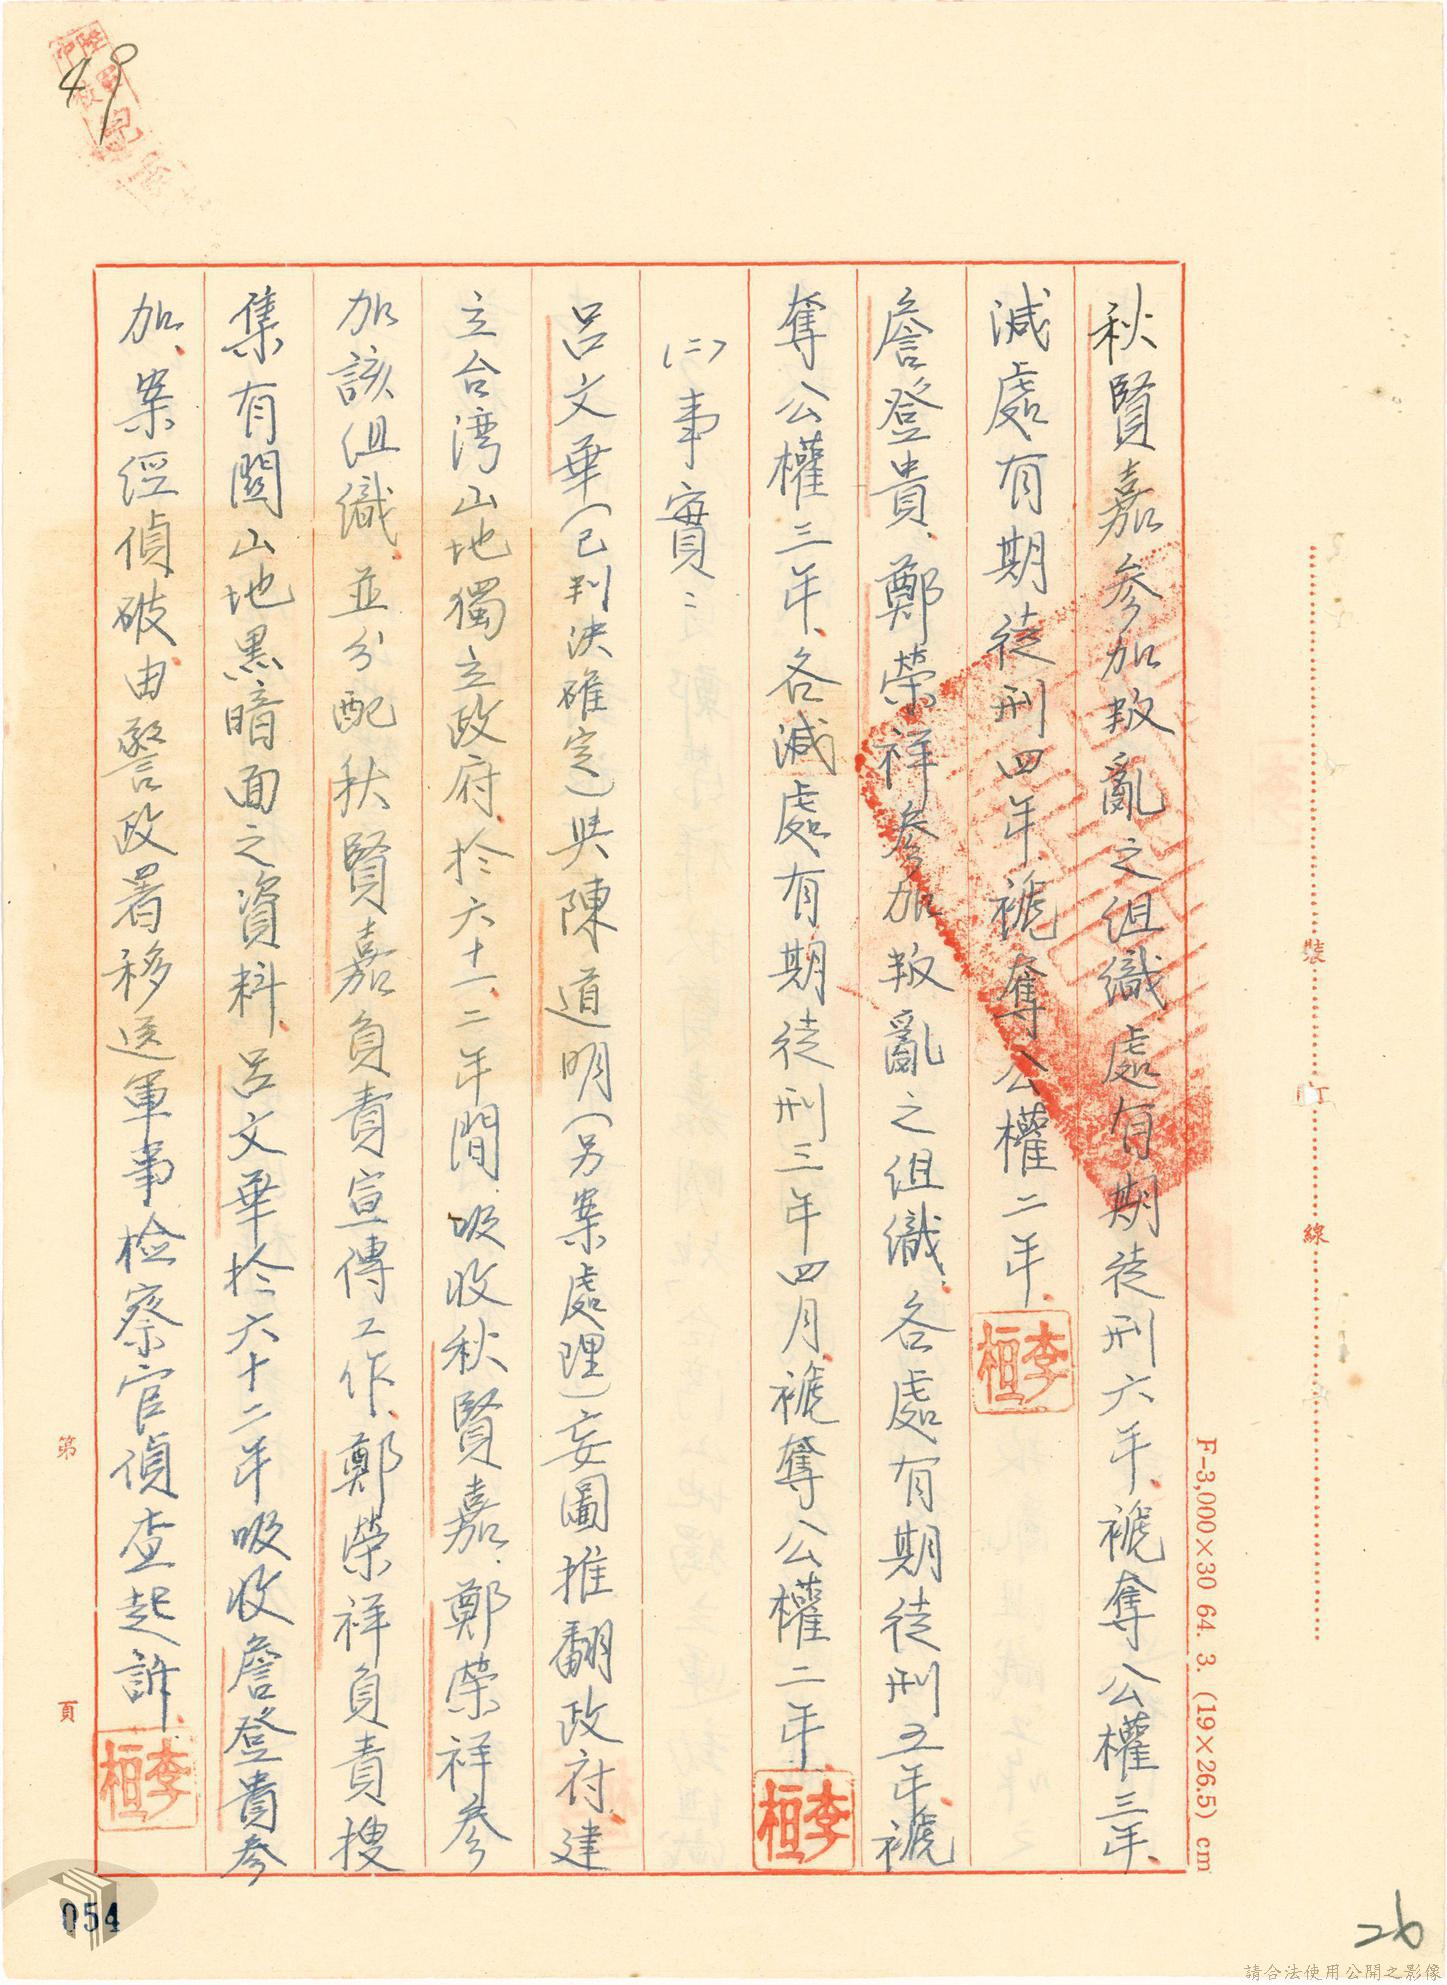 49
秋賢嘉参加叛亂之組織處有期徒刑六年、褫奪公權三年、
減處有期徒刑四年褫奪公權二年、
李桓
詹登貴、鄭榮祥參加叛亂之組織、各處有期徒刑五年、褫
奪公權三年、各減處有期徒刑三年四月、褫奪公權二年、
李桓
(二)事實：
呂文華(已判決確定)與陳道明(另案處理)妄圖推翻政府、建
立台湾山地獨立政府於六十一、二年間、吸收秋賢嘉、鄭榮祥參
加該組織、並分配秋賢嘉負責宣傳工作、鄭榮祥負責搜
集有關山地黑暗面之資料、呂文華於六十二年吸收詹登貴參
加、案經偵破、由警政署移送軍事檢察官偵查起訴、
李桓
裝
訂
線
F-3,000×30 64. 3. (19×26.5) cm
第
頁
054
26
請合法使用公開之影像